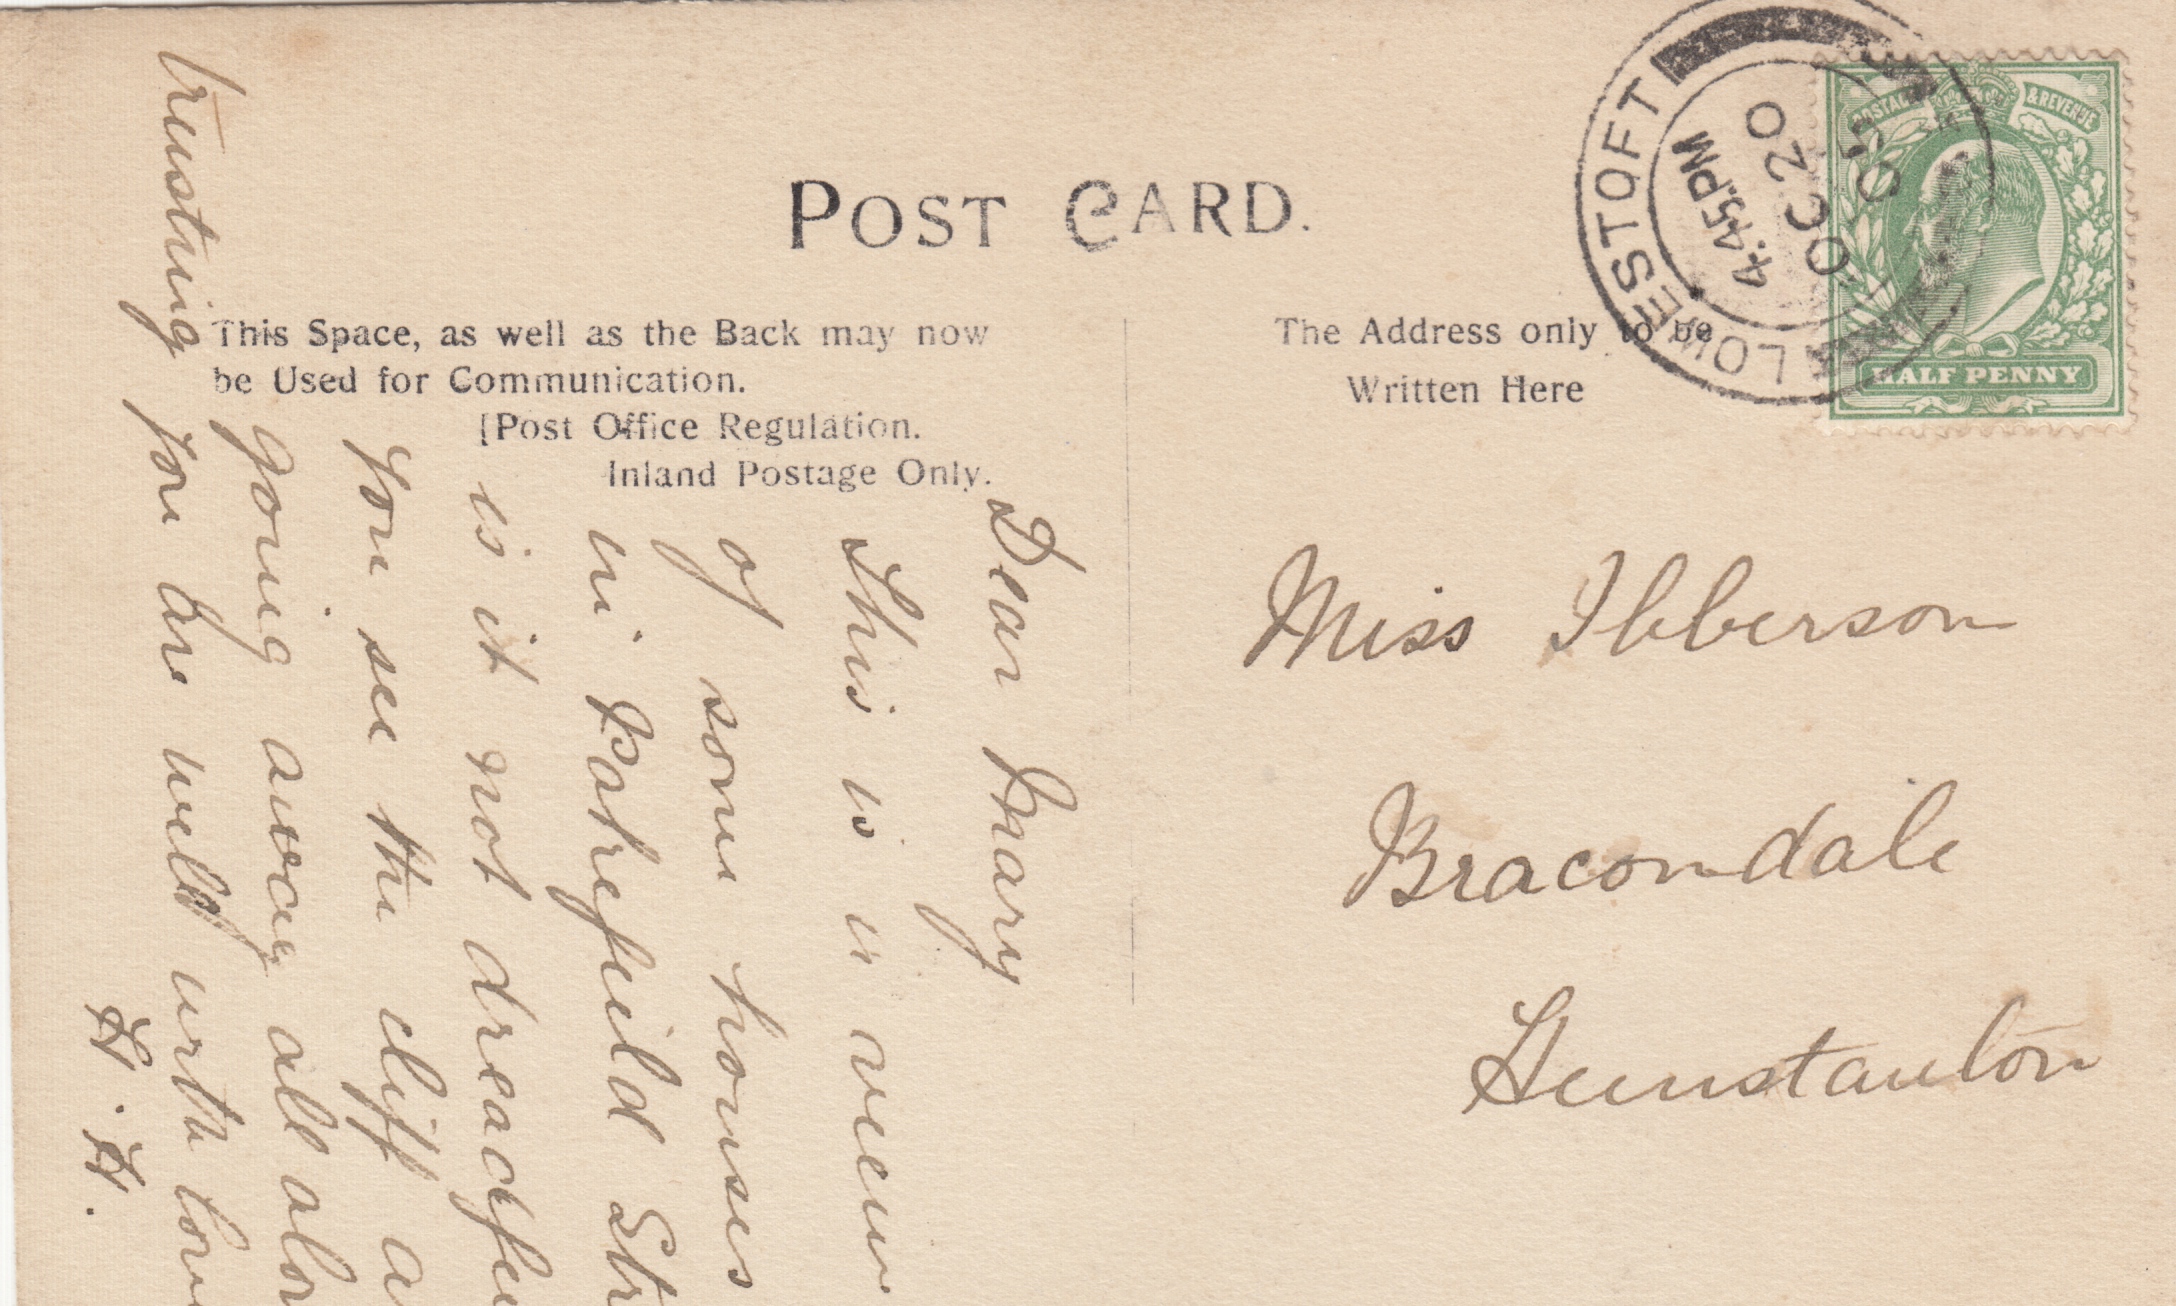 POST CARD.
This Space, as well as the Back may now
be Used for Communication.
[Post Office Regulation.
Inland Postage Only.
The Address only to be
Written Here
LOWESTOFT
4.45PM
OC 20
05
POSTAGE & REVENUE
HALF PENNY
Miss Ibberson
Bracondale
Hunstanton
Dear Mary
This is a veiw
of some houses
in Pakefeild Str
is it not dreadfu
You see the cliff a
going away all alon
trusting you are well with love
H. H.